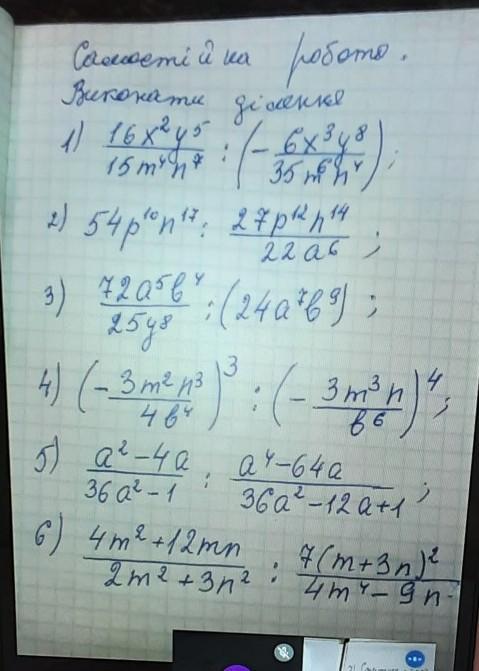 Самостійна робота.
Виконати ділення
1) 16x²y⁵ / 15m⁴n⁷ : (- 6x³y⁸ / 35m⁶n⁴);
2) 54p¹⁰n¹⁷ : 27p¹²n¹⁴ / 22a⁶;
3) 72a⁵b⁴ / 25y⁸ : (24a⁷b⁹);
4) (- 3m²n³ / 4b⁴)³ : (- 3m³n / b⁶)⁴;
5) a²-4a / 36a²-1 : a⁴-64a / 36a²-12a+1;
6) 4m²+12mn / 2m²+3n² : 7(m+3n)² / 4m⁴-9n